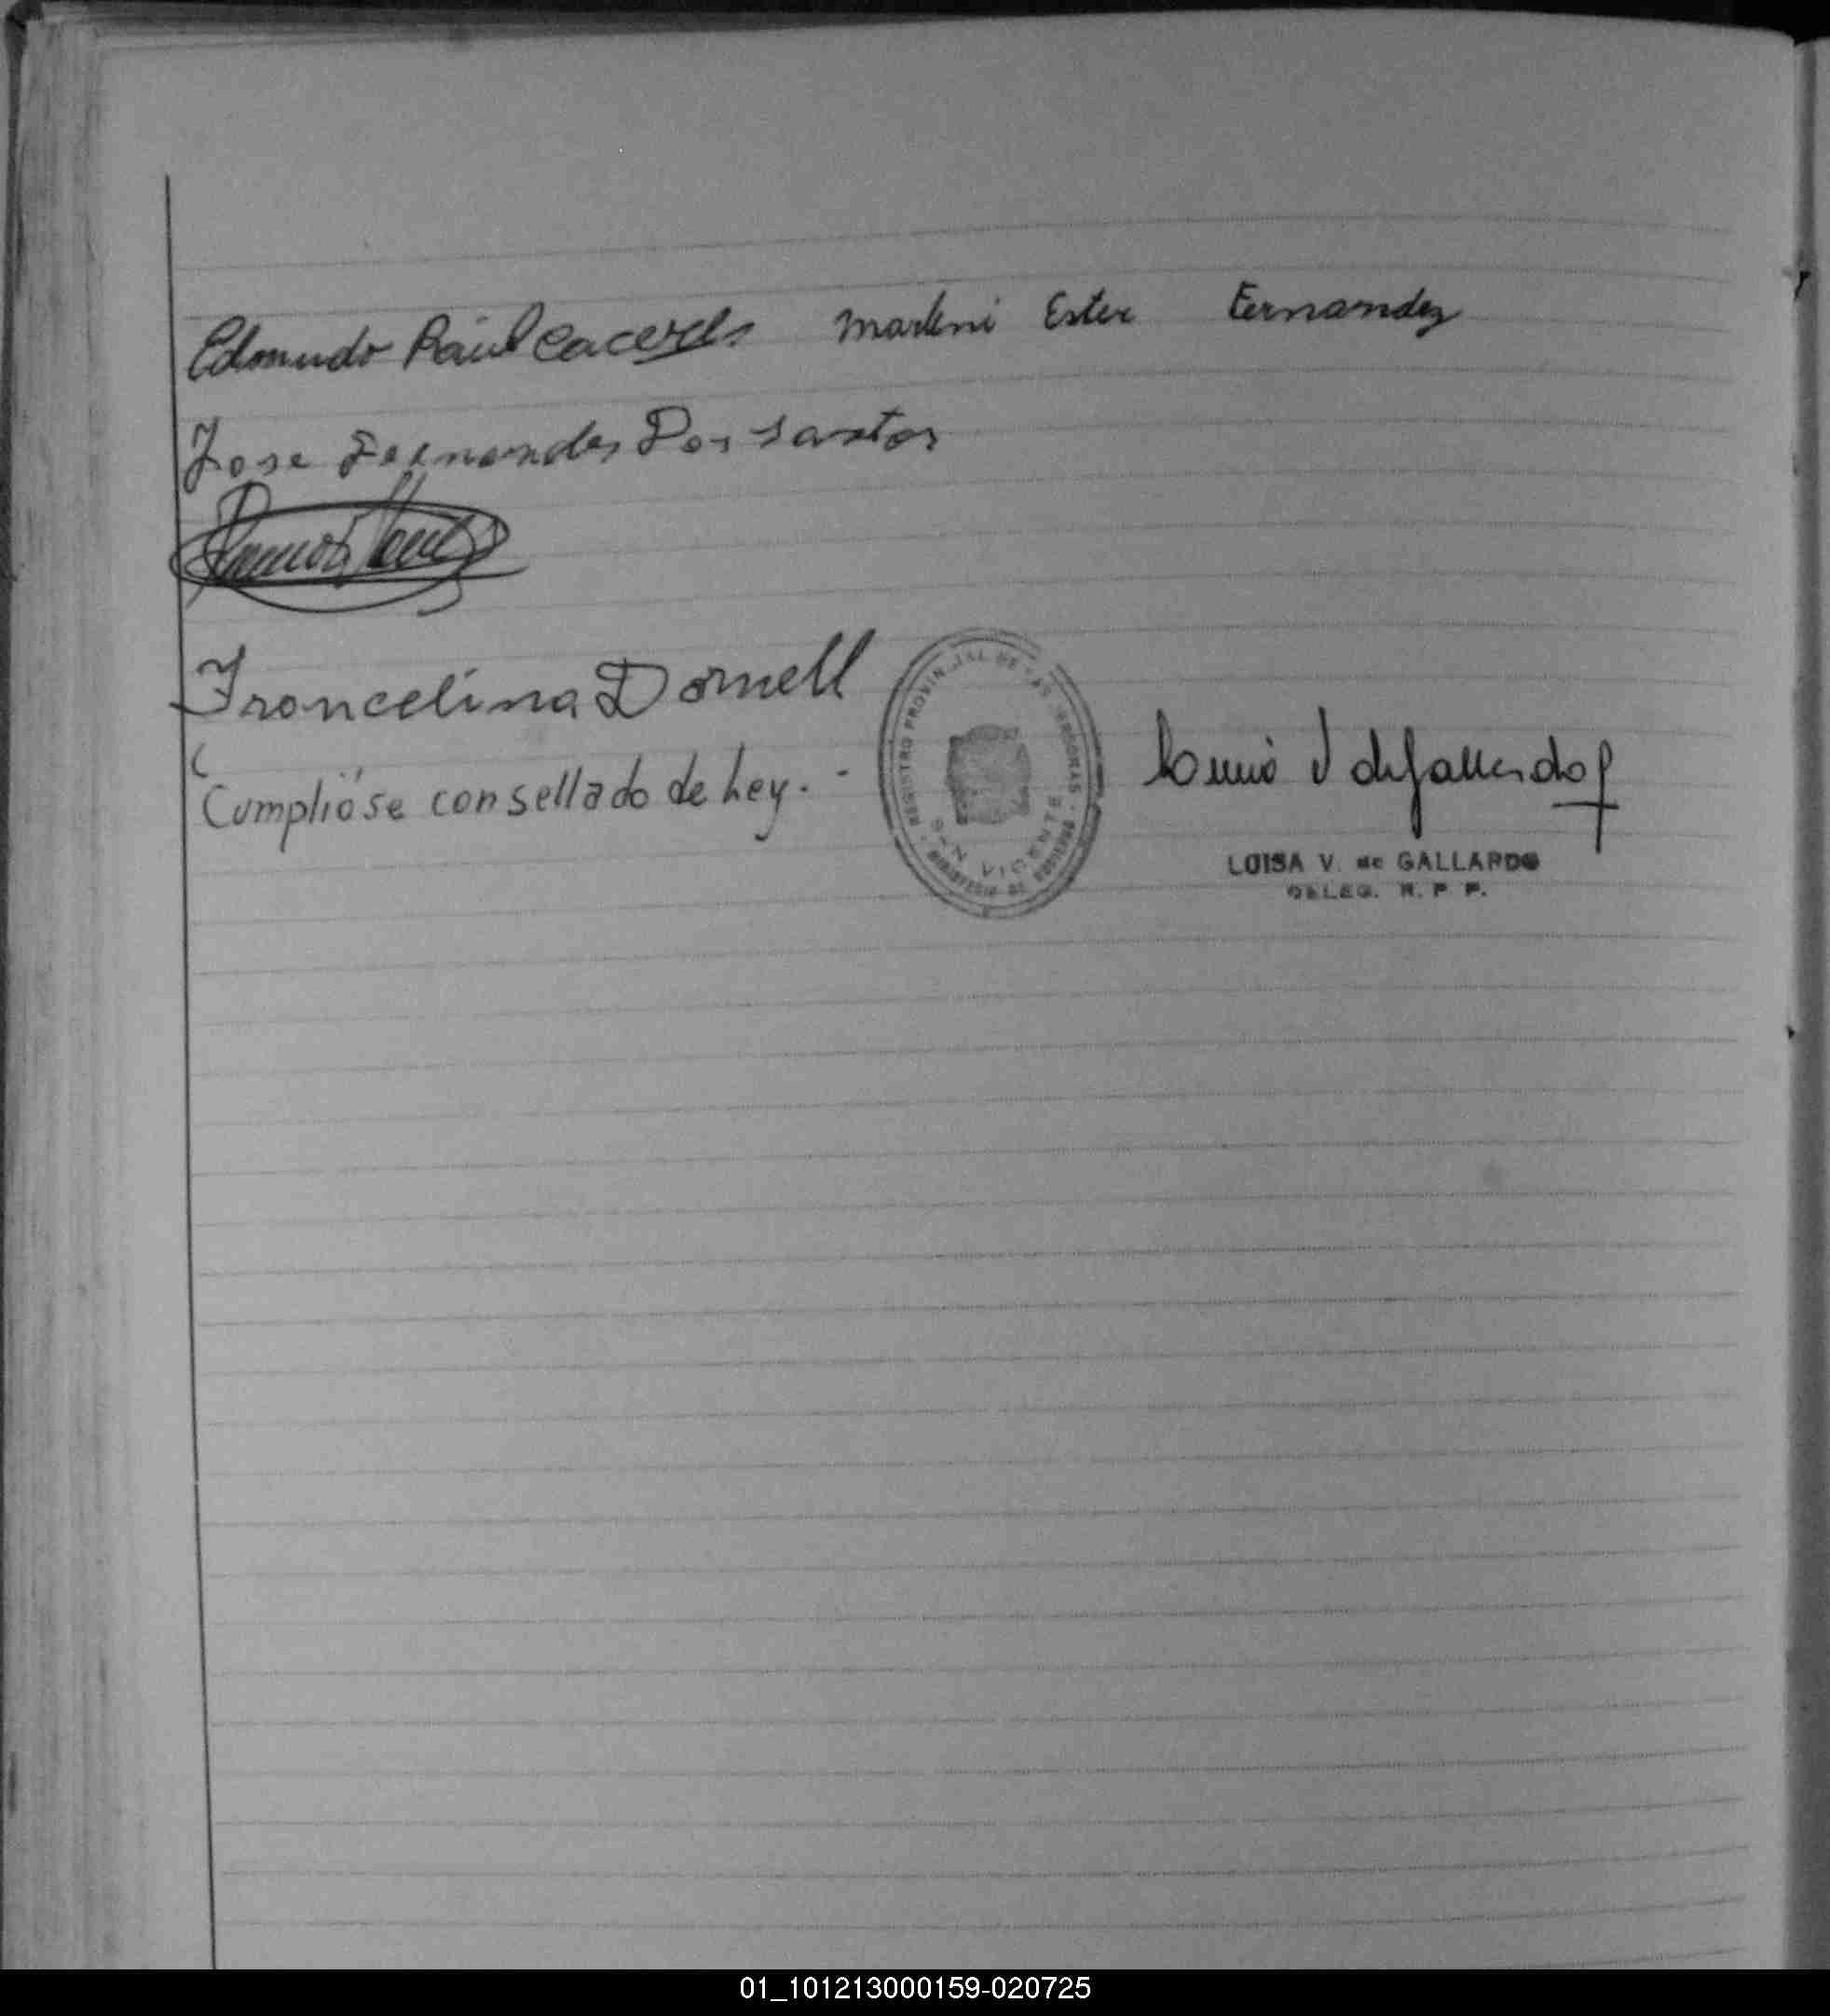 Edmundo Raúl Caceres Marleni Ester Fernandez
Jose Fernandes Dos Santos
Francelina Dornell
Cumplióse con sellado de Ley. -
REGISTRO PROVINCIAL DE LAS PERSONAS
MINISTERIO DE GOBIERNO
SAN VICENTE
LUISA V. de GALLARDO
DELEG. R. P. P.
01_101213000159-020725